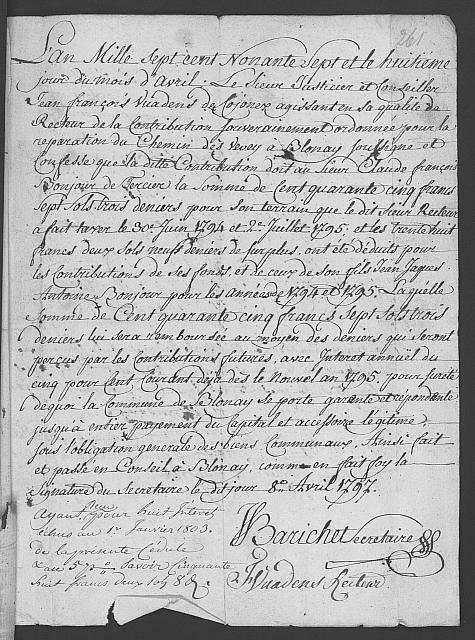 261
L'an Mille Sept cent Nonante Sept et le huitième
jour du mois d'Avril. Le Sieur Justicier et Conseiller
Jean françois Vuadens de Cojonex agissant en sa qualité de
Recteur de la Contribution souverainement ordonnée pour la
reparation du Chemin dès Vevey à Blonay soussigné et
Confesse que la ditte Contribution doit au Sieur Claude françois
Bonjour de Tercier la somme de Cent quarante cinq francs
Sept Sols trois deniers pour son terrain que le dit Sieur Recteur
a fait taxer le 30e. Juin 1794 et 2e. Juillet 1795. et les Trente huit
francs deux Sols neuf deniers de surplus, ont été déduits pour
les Contributions de ses fonds, et de ceux de son fils Jean Jaques
Antoine Bonjour pour les années de 1794 et 1795. Laquelle
somme de Cent quarante cinq francs Sept Sols trois
deniers lui sera remboursée au moyen des deniers qui seront
perçus par les Contributions futures, avec Interet annuel du
cinq pour Cent Courant déja dès le Nouvel an 1795. pour sureté
dequoi la Commune de Blonay se porte garente et repondante
jusqu'à entier payement du Capital et accessoire légitime.
sous l'obligation generale des biens Communaux, Ainsi fait
et passé en Conseil à Blonay, comme en fait foy la
Signature du Secretaire le dit jour 8e. Avril 1797.
Ayant pour huit Interet
échus au 1er Janvier 1803.
de la presente Cédule
Savoir Cinquante
huit francs deux
Barichet Secretaire
Vuadens Recteur